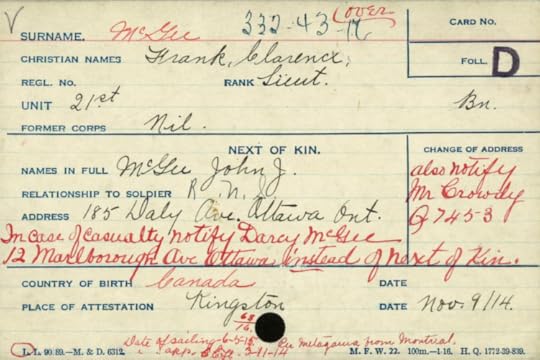 V 332-43-16 Cover
SURNAME. McGee CARD NO.
CHRISTIAN NAMES Frank, Clarence, FOLL. D
REGL. NO. RANK Lieut.
UNIT 21st Bn.
FORMER CORPS Nil.
NEXT OF KIN. CHANGE OF ADDRESS
NAMES IN FULL McGee John J. also notify
RELATIONSHIP TO SOLDIER Mr Crowdy
ADDRESS 185 Daly Ave. Ottawa Ont. Q 7453
In case of casualty notify Darcy McGee
12 Marlborough Ave Ottawa instead of next of Kin.
COUNTRY OF BIRTH Canada DATE
PLACE OF ATTESTATION Kingston DATE Nov. 9/14.
Date of sailing 6-5-15 Per Metagama from Montreal.
L. L. 90:89.—M. & D. 6312. M. F. W. 22. 100m.-1-16. H. Q. 1772-39-839.